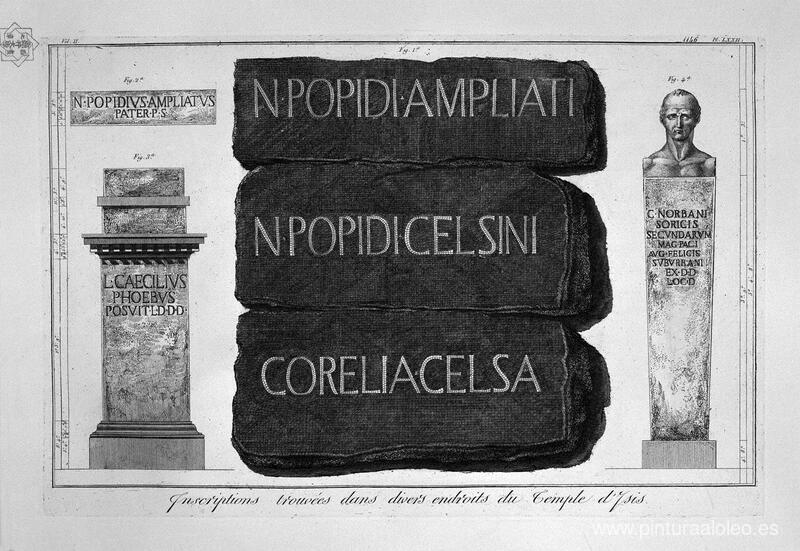 Vol. II.
1146 Pl. LXXII.
Fig. 1ª
N·POPIDI·AMPLIATI
N·POPIDI·CELSINI
CORELIACELSA
Fig. 2ª
N·POPIDIVS·AMPLIATVS
PATER·P·S·
Fig. 3ª
L·CAECILIVS
PHOEBVS
POSVIT·L·D·D·D·
Fig. 4ª
C·NORBANI
SORICIS
SECVNDARVM
MAG·PAGI
AVG·FELICIS
SVBVRBANI
EX·D·D
LOC·D
Inscriptions trouvées dans divers endroits du Temple d'Isis.
www.pinturaaloleo.es